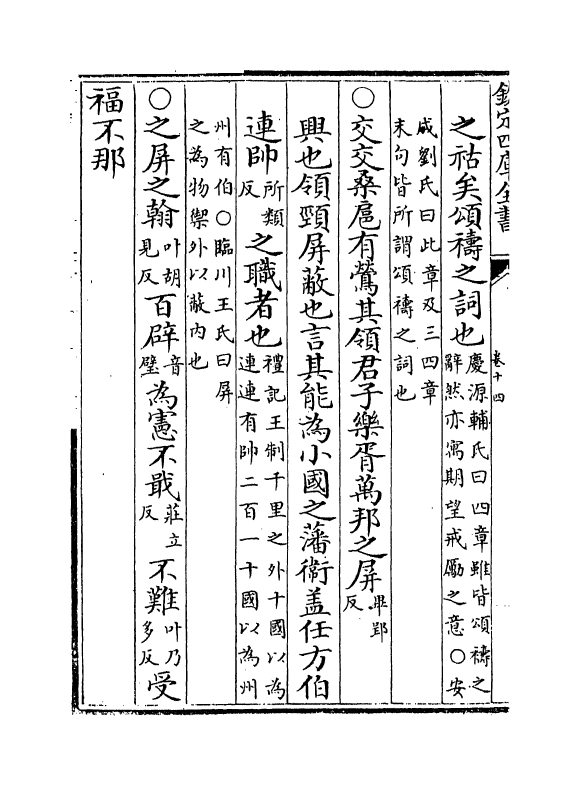 欽定四庫全書
卷十四
之祜矣頌禱之詞也慶源輔氏曰四章雖皆頌禱之
辭然亦寓期望戒勵之意○安
成劉氏曰此章及三四章
末句皆所謂頌禱之詞也
○交交桑扈有鶯其領君子樂胥萬邦之屏卑郢
反
興也領頸屏蔽也言其能為小國之藩衛盖任方伯
連帥所類
反之職者也禮記王制千里之外十國以為
連連有帥二百一十國以為州
州有伯○臨川王氏曰屏
之為物禦外以蔽内也
○之屏之翰叶胡
見反百辟音
璧為憲不戢莊立
反不難叶乃
多反受
福不那